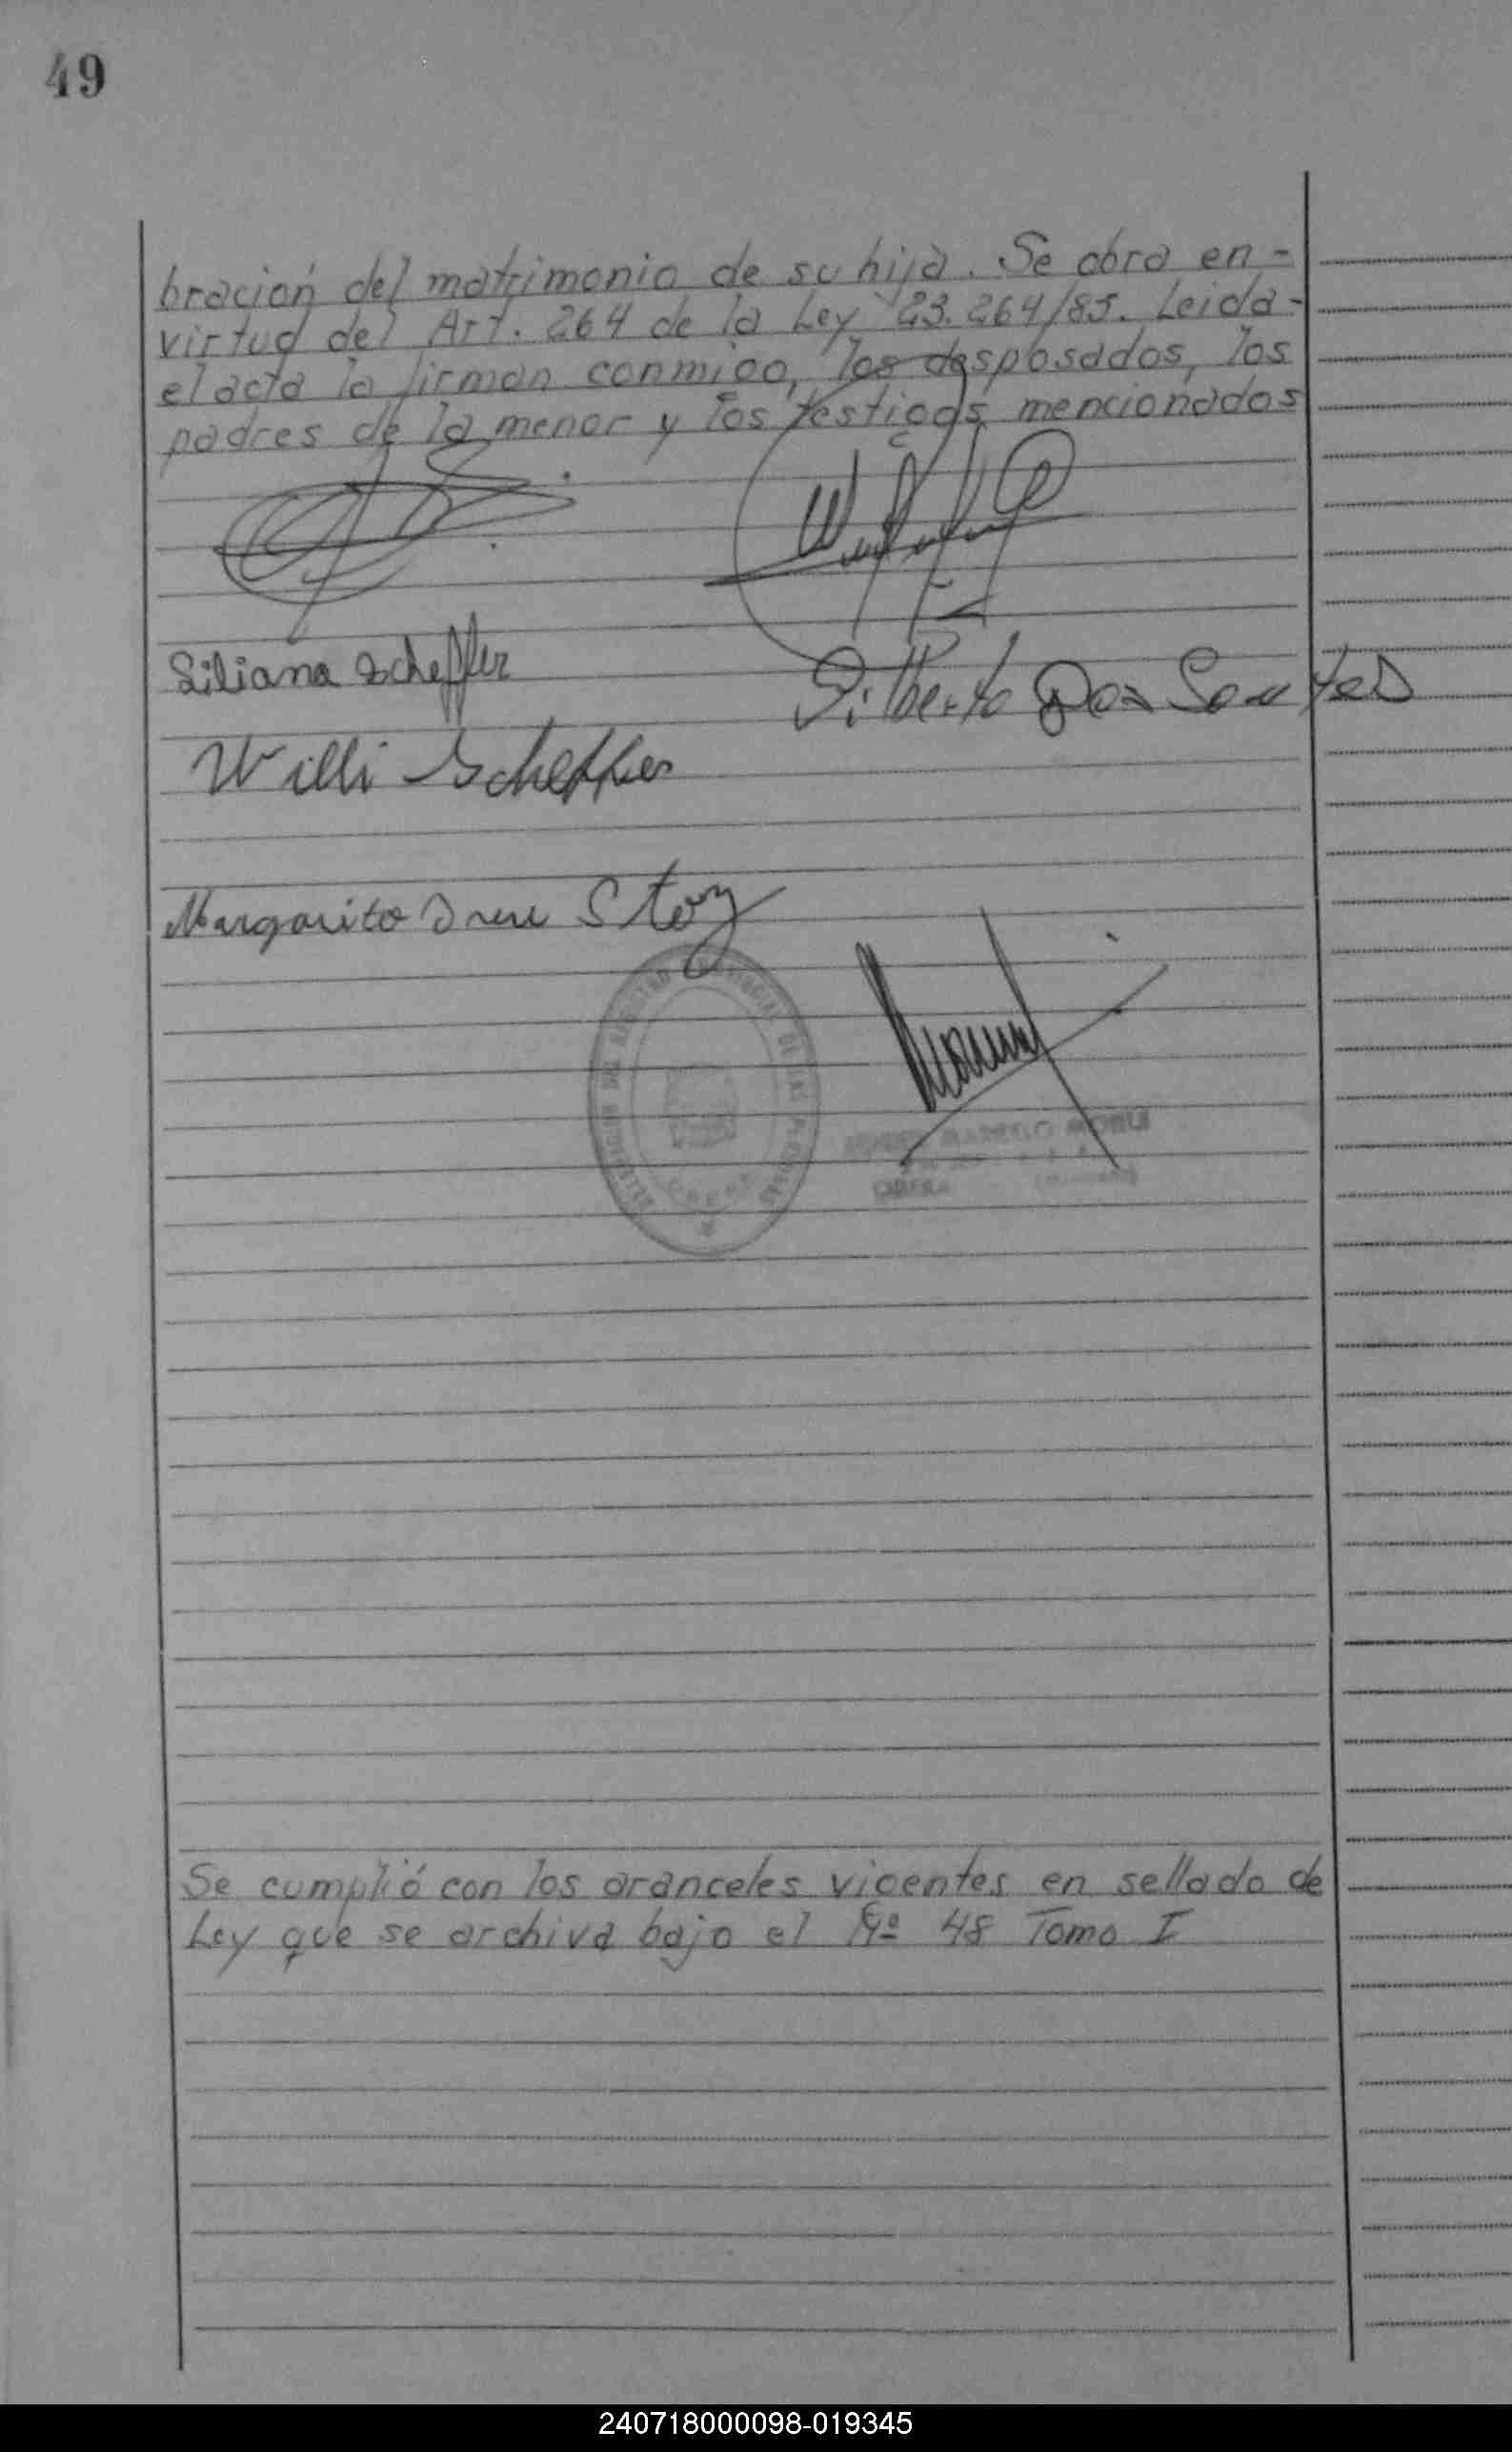 49
bración del matrimonio de su hija. Se obra en-
virtud del Art. 264 de la Ley 23.264/85. Leida-
el acta la firman conmigo, los desposados, los
padres de la menor y los testigos mencionados
Liliana Scheffer
Gilberto Dos Santos
Willi Scheffer
Margarita Irene Stoy
REGISTRO PROVINCIAL DE LAS PERSONAS
OBERA
OBERA
Se cumplió con los aranceles vigentes en sellado de
Ley que se archiva bajo el Nº 48 Tomo I
240718000098-019345